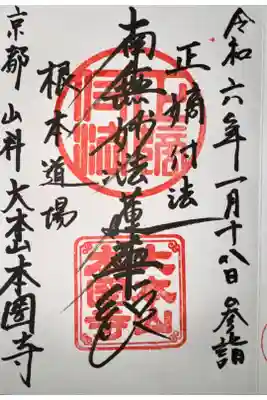 令和六年一月十八日参詣
正嫡付法
南無妙法蓮華経
根本道場
京都 山科 大本山本圀寺